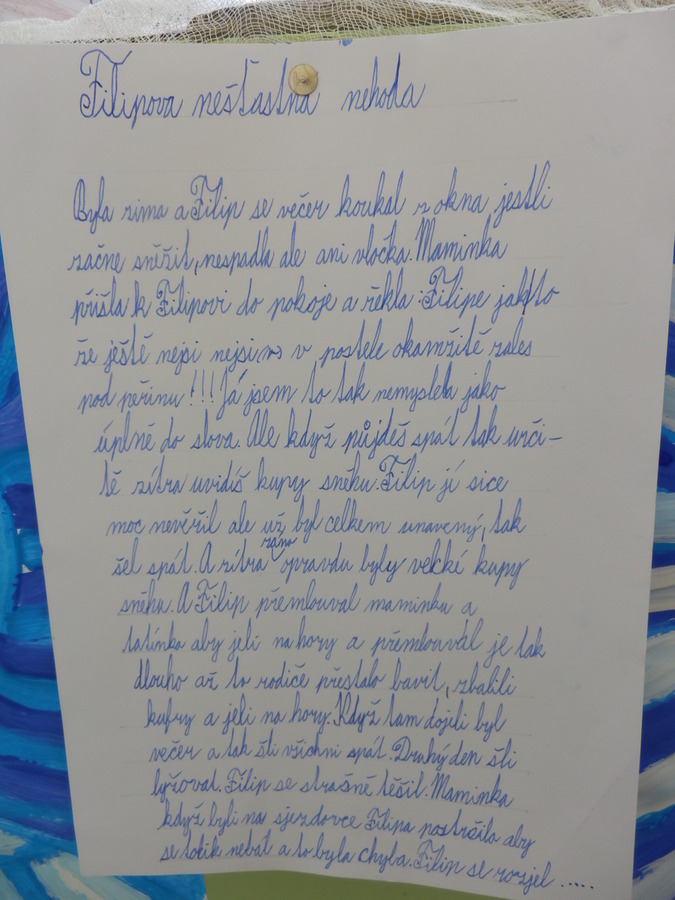 Filipova nešťastná nehoda
Byla zima a Filip se večer koukal z okna jestli
začne sněžit, nespadla ale ani vločka. Maminka
přišla k Filipovi do pokoje a řekla: Filipe jakto
že ještě nejsi nejsi v postele okamžitě zales
pod peřinu!!! Já jsem to tak nemyslela jako
úplně do slova. Ale když půjdeš spát tak urči-
tě zítra uvidíš kupy sněhu. Filip jí sice
moc nevěřil ale už byl celkem unavený, tak
šel spát. A zítra ráno opravdu byly velké kupy
sněhu. A Filip přemlouval maminku a
tatínka aby jeli na hory a přemlouval je tak
dlouho až to rodiče přestalo bavit, zbalili
kufry a jeli na hory. Když tam dojeli byl
večer a tak šli všichni spát. Druhý den šli
lyžovat. Filip se strašně těšil. Maminka
když byli na sjezdovce Filipa postrčila aby
se tolik nebál a to byla chyba. Filip se rozjel .....